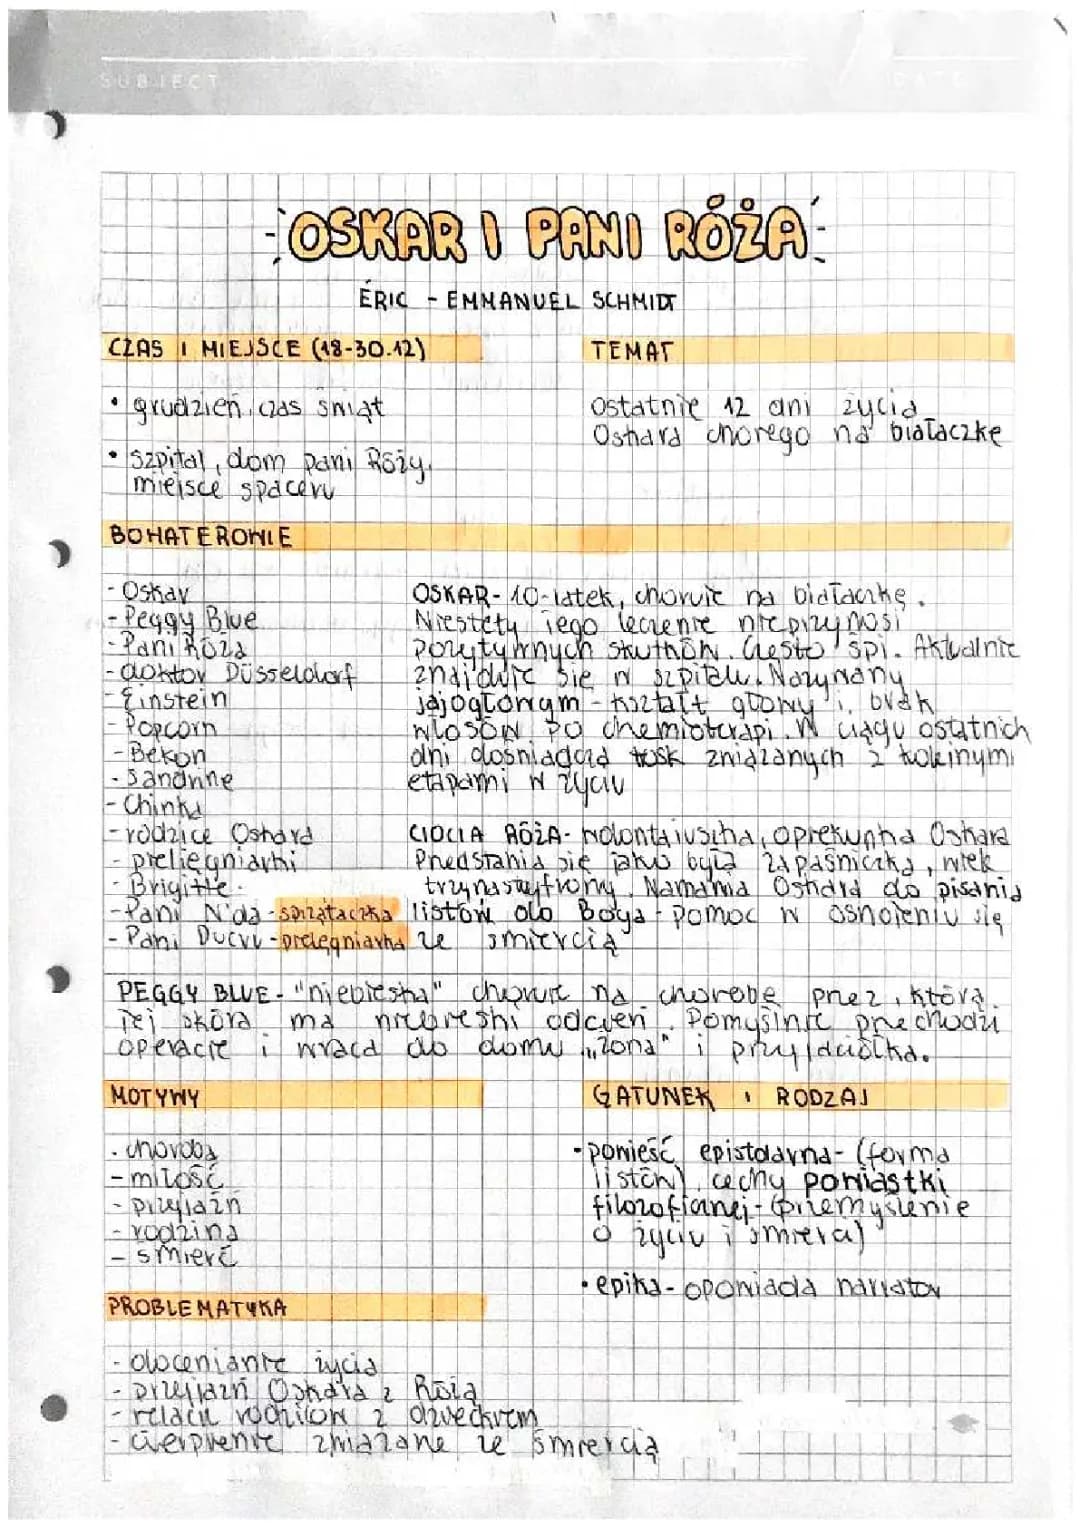 SUBJECT
DATE
OSKAR I PANI RÓŻA
ÉRIC - EMMANUEL SCHMIDT
CZAS I MIEJSCE (18-30.12)
TEMAT
• grudzień, czas świąt
Ostatnie 12 dni życia
Oskara chorego na białaczkę
• szpital, dom pani Róży,
miejsce spaceru
BOHATEROWIE
- Oskar
- Peggy Blue
- Pani Róża
- doktor Düsseldorf
- Einstein
- Popcorn
- Bekon
- Sandrine
- Chinka
- rodzice Oskara
- pielęgniarki
- Brigitte
- Pani N'da - sprzątaczka
- Pani Ducru - pielęgniarka
OSKAR - 10-latek, choruje na białaczkę.
Niestety jego leczenie nie przynosi
pozytywnych skutków. Często śpi. Aktualnie
znajduje się w szpitalu. Nazywany
jajogłowym - kształt głowy i brak
włosów po chemioterapi. W ciągu ostatnich
dni doświadcza trosk związanych z kolejnymi
etapami w życiu
CIOCIA RÓŻA - wolontariuszka, opiekunka Oskara
Przedstawia się jako była zapaśniczka, wiek
trzynastyfiony. Namawia Oskara do pisania
listów do Boga - pomoc w oswojeniu się
ze śmiercią
PEGGY BLUE - "niebieska" choruje na chorobę przez, którą
jej skóra ma niebieski odcień. Pomyślnie przechodzi
operację i wraca do domu, "żona" i przyjaciółka.
MOTYWY
GATUNEK I RODZAJ
- choroba
- miłość
- przyjaźń
- rodzina
- śmierć
- powieść epistolarna - (forma
listów), cechy powiastki
filozoficznej - (przemyślenie
o życiu i śmierci)
• epika - opowiada narrator
PROBLEMATYKA
- docenianie życia
- przyjaźń Oskara z Różą
- relacje rodziców z dzieckiem
- cierpienie związane ze śmiercią